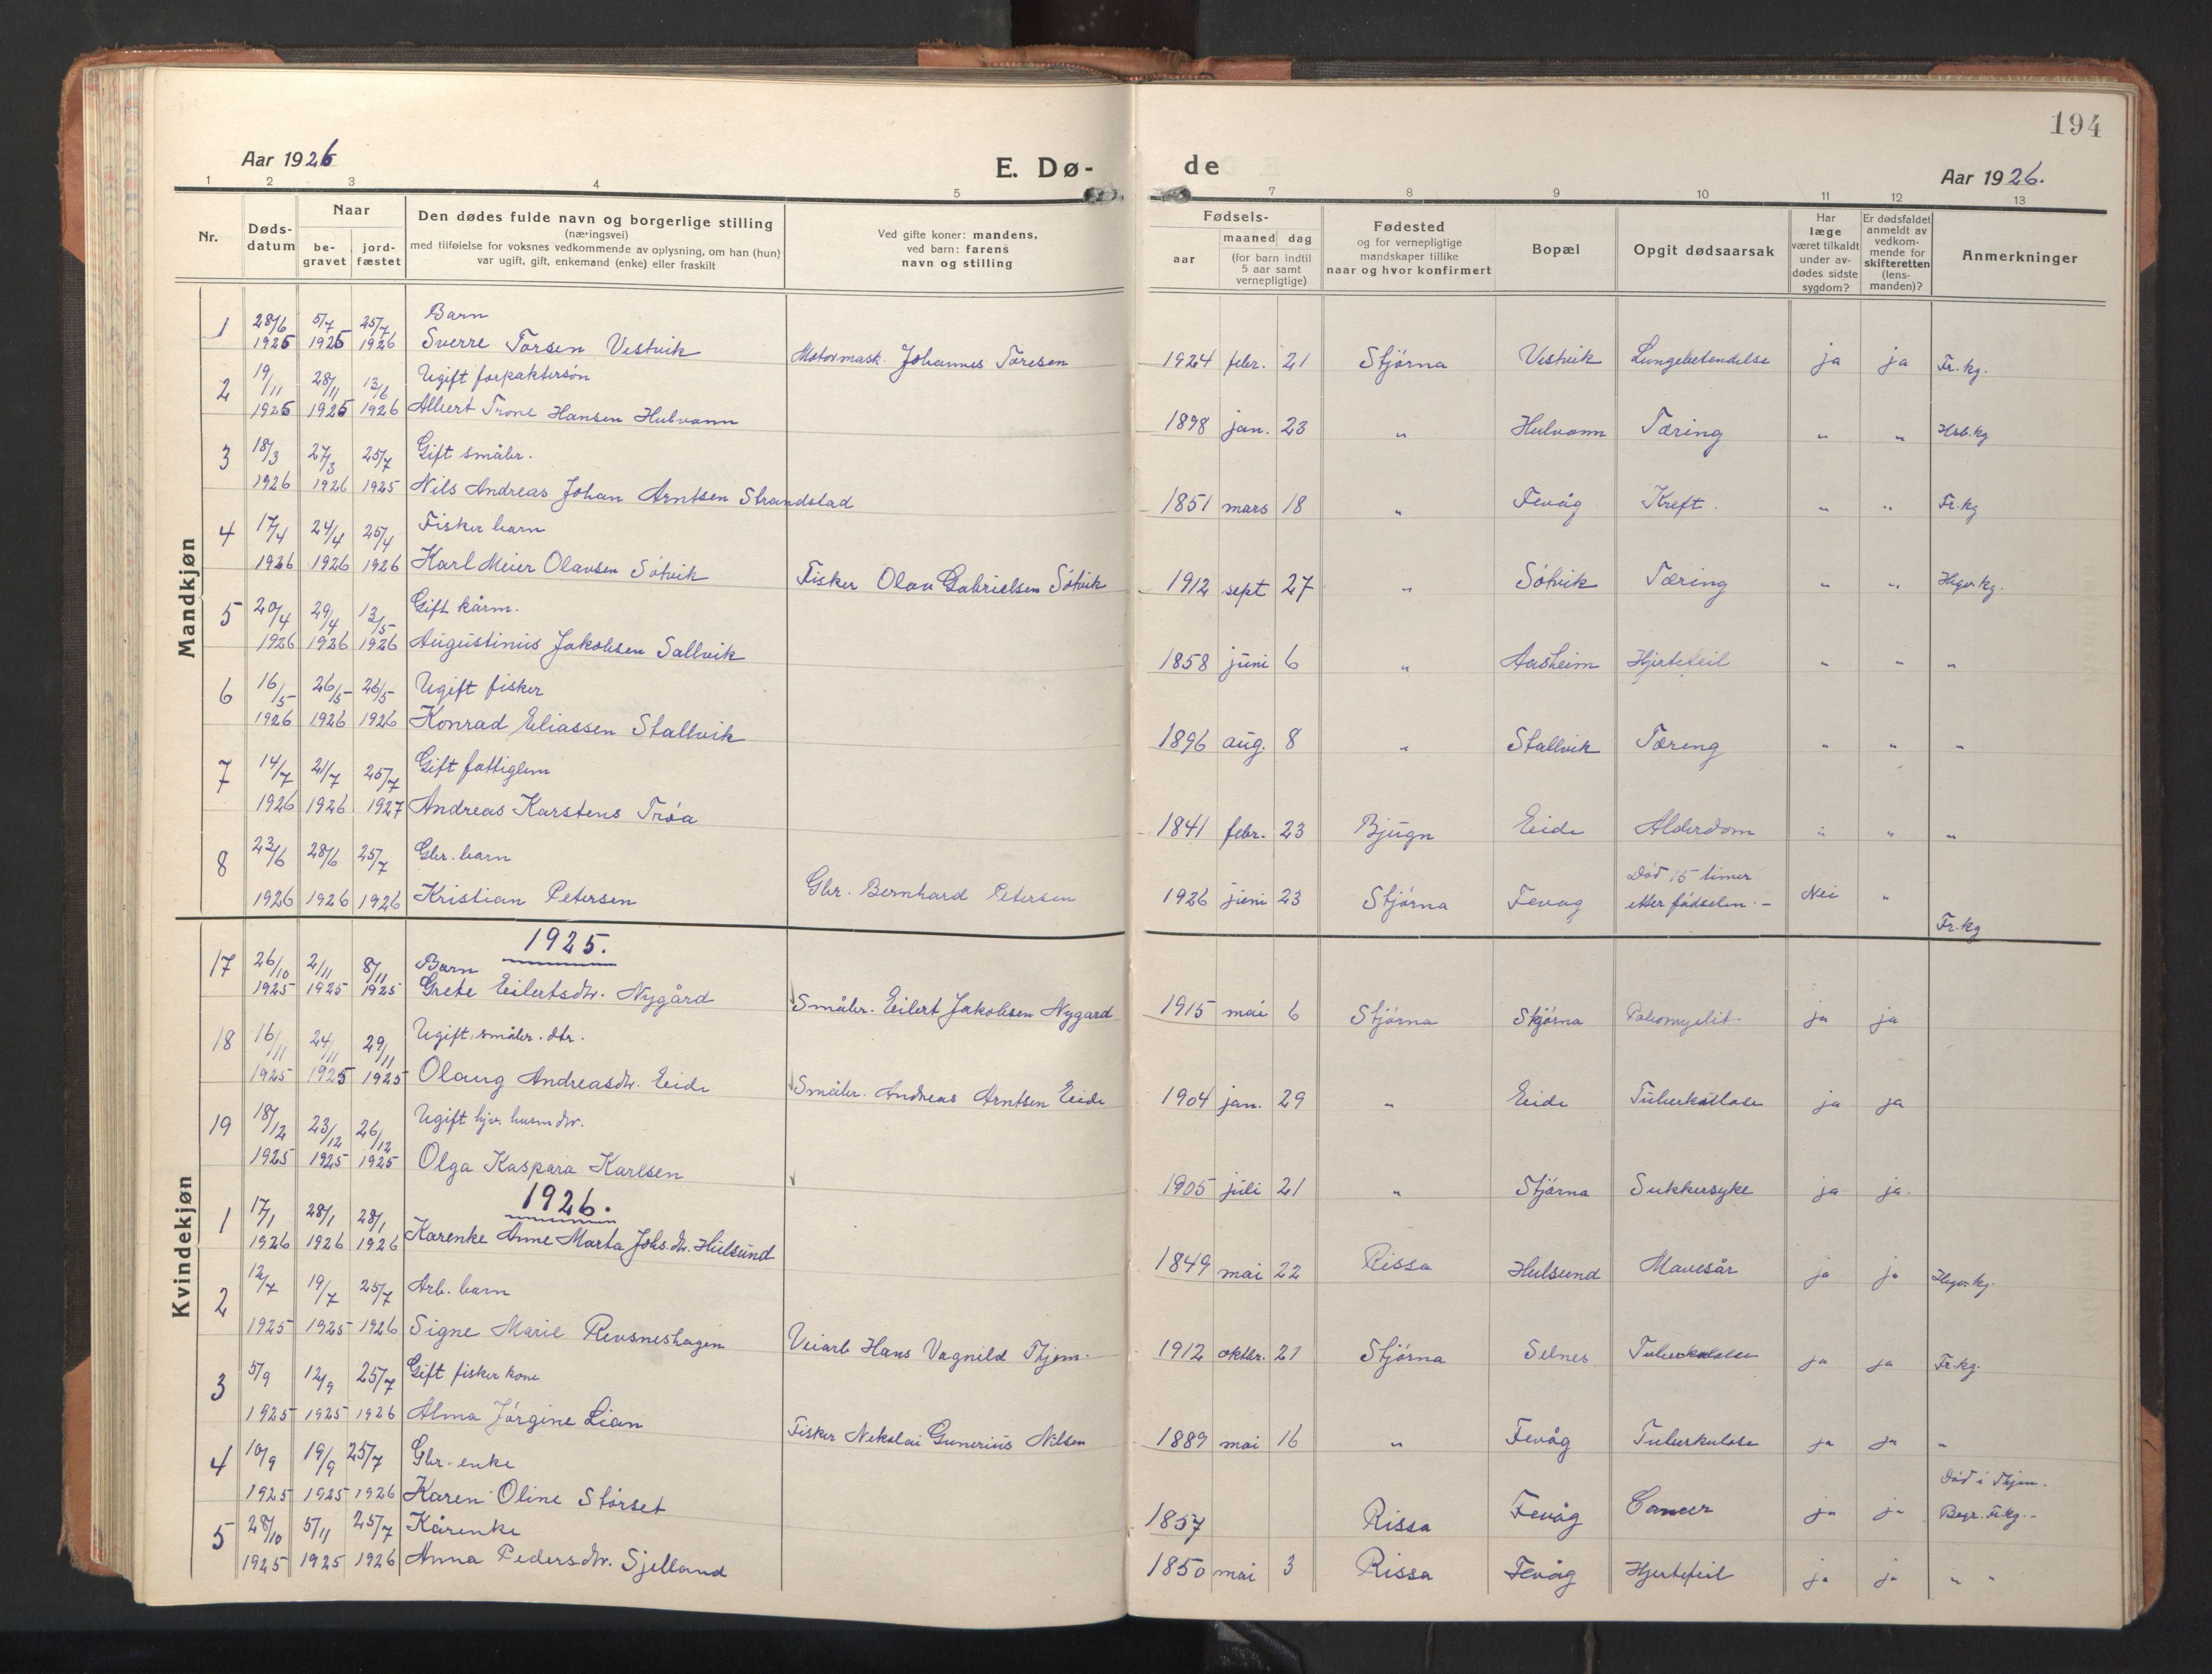 194
Aar 1926
E. Dø-
de
Aar 1926.
1 2 3 4 5 7 8 9 10 11 12 13
Nr.
Døds-
datum
Naar
be-
gravet
jord-
fæstet
Den dødes fulde navn og borgerlige stilling
(næringsvei)
med tilføielse for voksnes vedkommende av oplysning, om han (hun)
var ugift, gift, enkemand (enke) eller fraskilt
Ved gifte koner: mandens,
ved barn: farens
navn og stilling
Fødsels-
aar
maaned dag
(for barn indtil
5 aar samt
vernepligtige)
Fødested
og for vernepligtige
mandskaper tillike
naar og hvor konfirmert
Bopæl
Opgit dødsaarsak
Har
læge
været tilkaldt
under av-
dødes sidste
sygdom?
Er dødsfaldet
anmeldt av
vedkom-
mende for
skifteretten
(lens-
manden)?
Anmerkninger
Mandkjøn
1 28/6 5/7 25/7 Barn
1925 1925 1926 Sverre Torsen Vestvik Motormask. Johannes Toresen 1924 febr. 21 Stjørna Vestvik Lungebetendelse ja ja Fr. kg.
2 19/11 28/11 13/6 Ugift forpaktersøn
1925 1925 1926 Albert Trone Hansen Hulvann 1898 jan. 23 " Hulvann Tæring " " Hsb. kg
3 18/3 27/3 25/7 Gift småbr.
1926 1926 1925 Nils Andreas Johan Arntsen Strandstad 1851 mars 18 " Fevåg Kreft. " " Fr. kg
4 17/4 24/4 25/4 Fisker barn
1926 1926 1926 Karl Meier Olavsen Søtvik Fisker Olav Gabrielsen Søtvik 1912 sept 27 " Søtvik Tæring " " Heger kg.
5 20/4 29/4 13/5 Gift kårm.
1926 1926 1926 Augustinus Jakobsen Sallvik 1858 juni 6 " Aasheim Hjertefeil " " "
6 16/5 26/5 26/5 Ugift fisker
1926 1926 1926 Konrad Eliassen Stallvik 1896 aug. 8 " Stallvik Tæring " " "
7 14/7 21/7 25/7 Gift fattiglem
1926 1926 1927 Andreas Karstens Trøa 1841 febr. 23 Bjugn Eide Alderdom " " "
8 23/6 28/6 25/7 Gbr. barn Død 15 timer
1926 1926 1926 Kristian Petersen Gbr. Bernhard Petersen 1926 juni 23 Stjørna Fevåg etter fødselen. – Nei " Fr. kg
Kvindekjøn
1925.
17 26/10 2/11 8/11 Barn
1925 1925 1925 Grete Eilertsdtr. Nygård Småbr. Eilert Jakobsen Nygard 1915 mai 6 Stjørna Stjørna Poliomyelit ja ja
18 16/11 24/11 29/11 Ugift småbr. dtr.
1925 1925 1925 Olaug Andreasdtr. Eide Småbr. Andreas Arntsen Eide 1904 jan. 29 " Eide Tuberkulose ja ja
19 18/12 23/12 26/12 Ugift hjv. husm dtr.
1925 1925 1925 Olga Kaspara Karlsen 1905 juli 21 " Stjørna Sukkersyke ja ja.
1926.
1 17/1 28/1 28/1
1926 1926 1926 Karenke Anne Marta Johs. dtr. Hulsund 1849 mai 22 Rissa Hulsund Mavesår ja ja Heger kg.
2 12/7 19/7 25/7 Arb. barn
1925 1925 1926 Signe Marie Revsneshagen Veiarb Hans Vagnild Thjem. 1912 oktbr. 21 Stjørna Selnes Tuberkulose ja ja Fr. kg.
3 5/9 12/9 25/7 Gift fisker kone
1925 1925 1926 Alma Jørgine Lian Fisker Nekolai Gunerius Nilsen 1889 mai 16 " Fevåg Tuberkulose ja ja "
4 10/9 19/9 25/7 Gbr. enke Død i Thjem.
1925 1925 1926 Karen Oline Størset 1857 Rissa Fevåg Cancer ja ja Begr. Fr. kg. –
5 28/10 5/11 25/7 Kårenke
1925 1925 1926 Anna Pedersdtr. Sjelland 1850 mai 3 Rissa Fevåg Hjertefeil ja ja " "